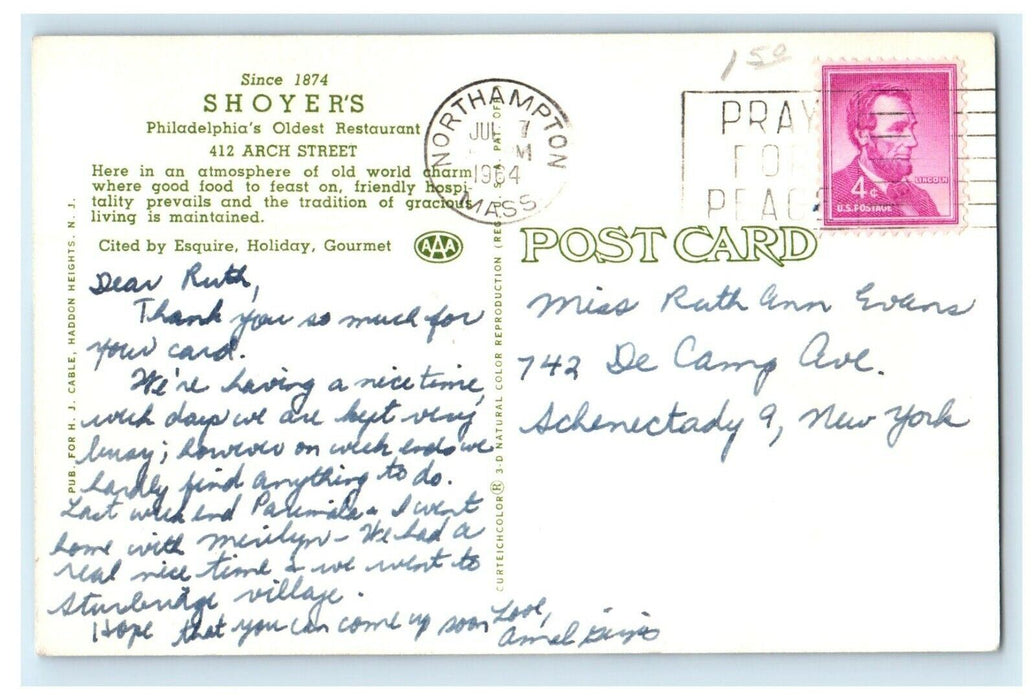 Since 1874
SHOYER'S
Philadelphia's Oldest Restaurant
412 ARCH STREET
Here in an atmosphere of old world charm
where good food to feast on, friendly hospi-
tality prevails and the tradition of gracious
living is maintained.
Cited by Esquire, Holiday, Gourmet
AAA
PUB. FOR H. J. CABLE, HADDON HEIGHTS, N. J.
CURTEICHCOLOR® 3-D NATURAL COLOR REPRODUCTION (REG. U.S.A. PAT. OFF
NORTHAMPTON
JUL 7
M
1964
MASS
150
PRAY
FOR
PEACE
4¢
LINCOLN
U.S. POSTAGE
POST CARD
Dear Ruth,
Thank you so much for
your card.
We're having a nice time,
week days we are kept very
busy; however on week ends we
hardly find anything to do.
Last week end Parimala & I went
home with Merilyn - We had a
real nice time & we went to
Sturbridge village.
Hope that you can come up soon
Love,
Amal
Miss Ruth Ann Evans
742 De Camp Ave.
Schenectady 9, New York